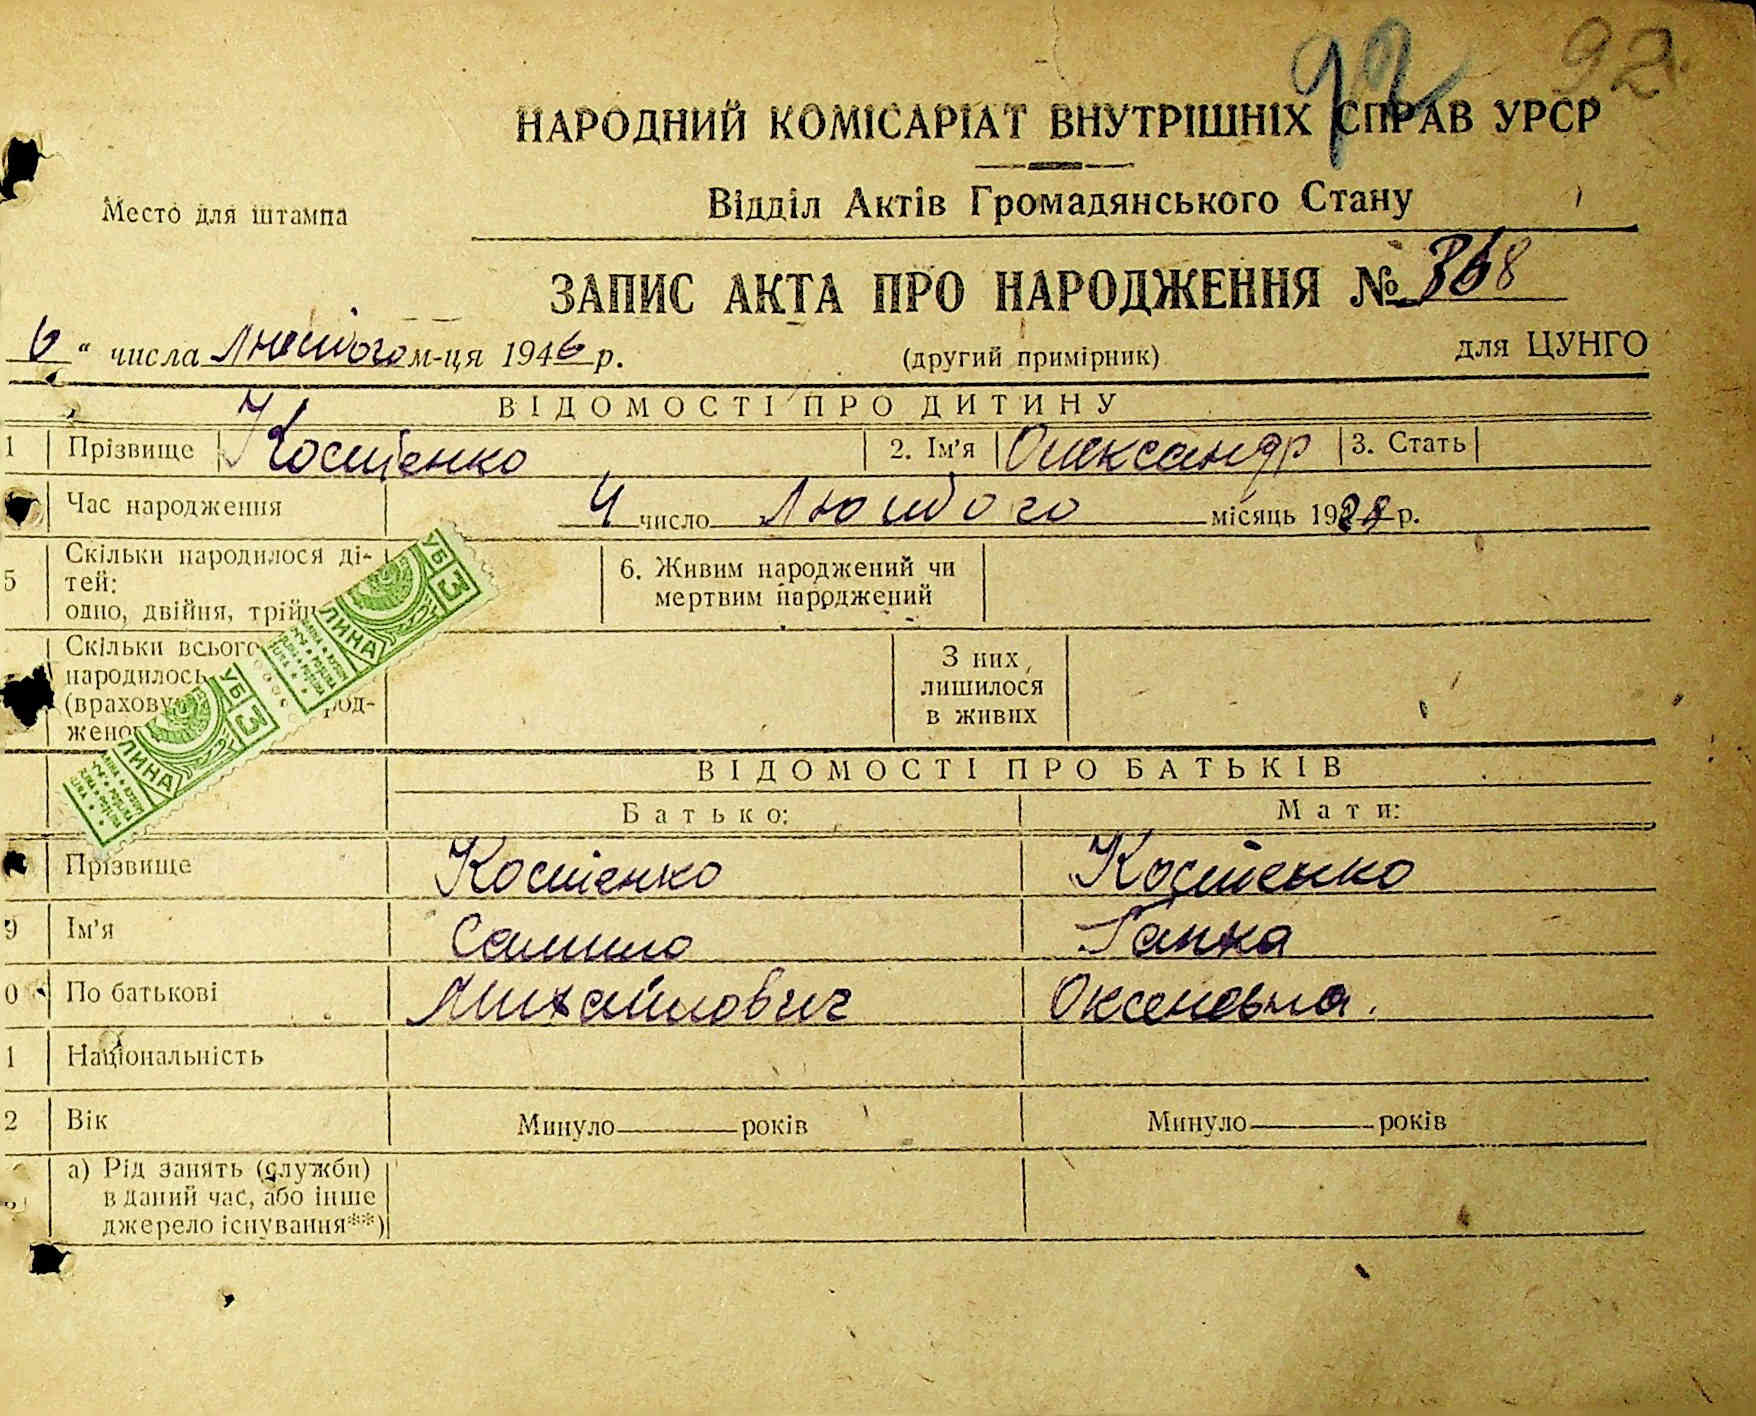 92 92.
НАРОДНИЙ КОМІСАРІАТ ВНУТРІШНІХ СПРАВ УРСР
Место для штампа
Відділ Актів Громадянського Стану
ЗАПИС АКТА ПРО НАРОДЖЕННЯ № 368
6 " числа Лютого м-ця 1946 р.
(другий примірник)
для ЦУНГО
ВІДОМОСТІ ПРО ДИТИНУ
1 Прізвище Костенко 2. Ім'я Олександр 3. Стать
Час народження 4 число Лютого місяць 192 р.
5 Скільки народилося ді-
тей:
одно, двійня, трійн
6. Живим народжений чи
мертвим народжений
Скільки всього
народилось
(врахову род-
жено
З них
лишилося
в живих
УБ 3
ЛИНА
УБ 3
ЛИНА
ВІДОМОСТІ ПРО БАТЬКІВ
Батько: Мати:
Прізвище Костенко Костенко
9 Ім'я Самило Ганна
0 По батькові Михайлович Оксеневна.
1 Національність
2 Вік Минуло років Минуло років
а) Рід занять (служби)
в даний час, або інше
джерело існування**)